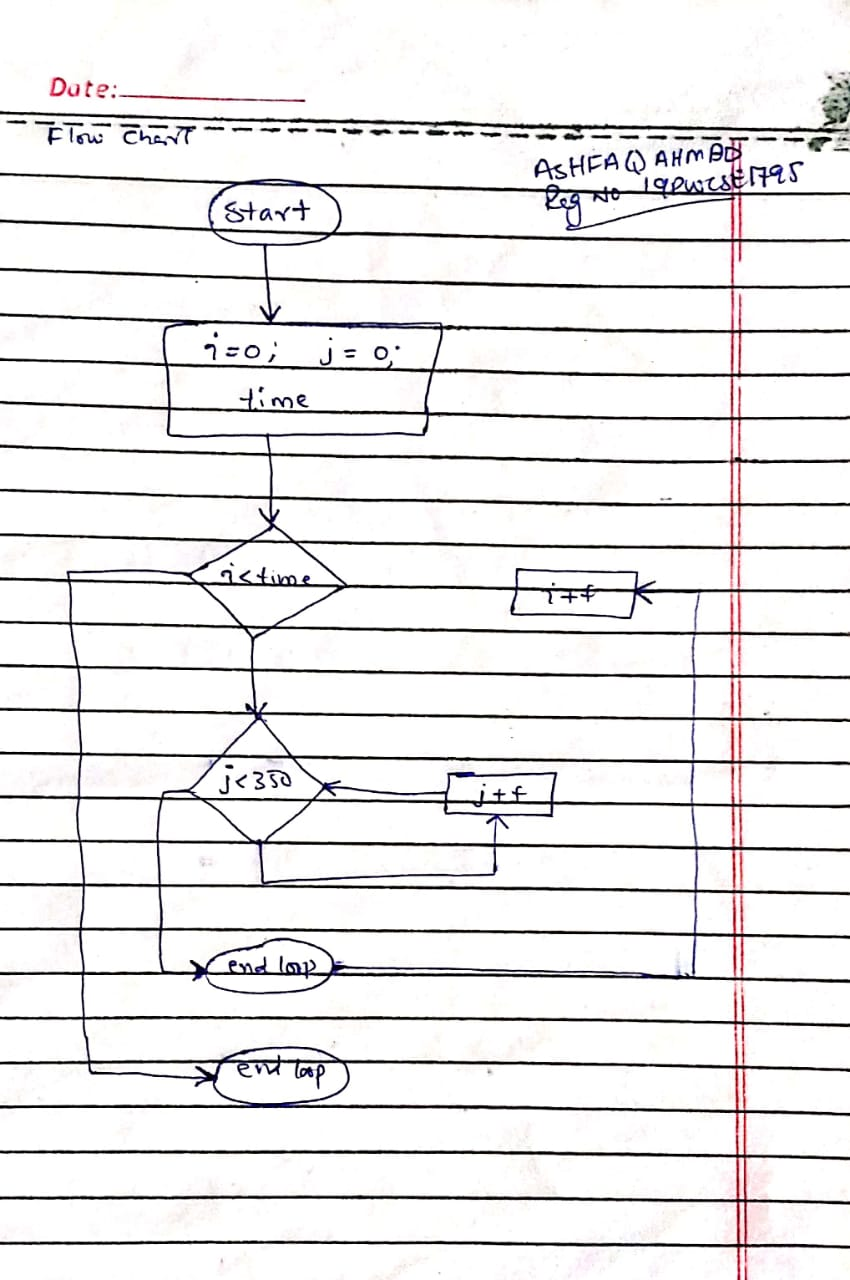 Date:
Flow Chart
ASHFAQ AHMAD
Reg No 19PWCSE1795
Start
i=0; j=0;
time
i<time
i++
j<350
j++
end loop
end loop